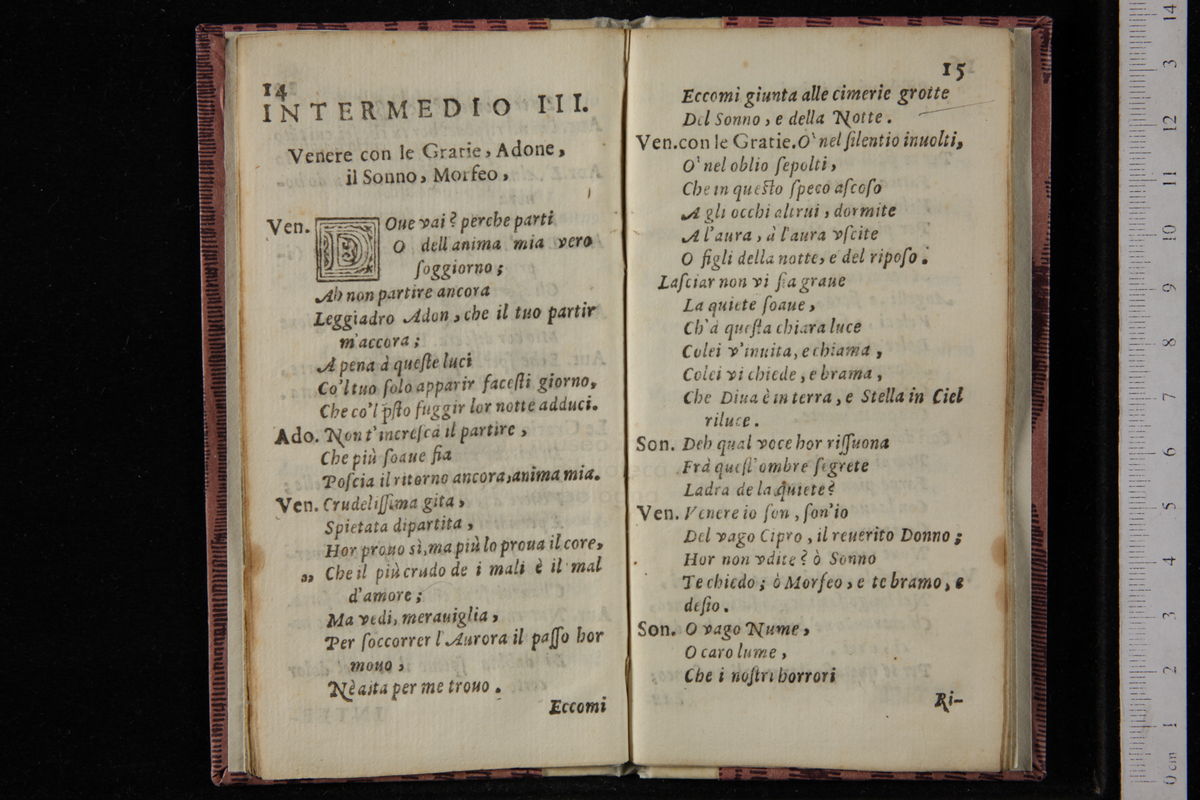 14
INTERMEDIO III.
Venere con le Gratie, Adone,
il Sonno, Morfeo,
Ven. DOue vai? perche parti
O dell anima mia vero
ſoggiorno;
Ah non partire ancora
Leggiadro Adon, che il tuo partir
m'accora;
A pena à queſte luci
Co'l tuo ſolo apparir faceſti giorno,
Che co'l pſto fuggir lor notte adduci.
Ado. Non t'increſca il partire,
Che più ſoaue fia
Poſcia il ritorno ancora, anima mia.
Ven. Crudeliſſima gita,
Spietata dipartita,
Hor prouo sì, ma più lo proua il core,
„ Che il più crudo de i mali è il mal
d'amore;
Ma vedi, merauiglia,
Per ſoccorrer l'Aurora il paſſo hor
mouo,
Nè aita per me trouo.
Eccomi
15
Eccomi giunta alle cimerie grotte
Del Sonno, e della Notte.
Ven. con le Gratie. O' nel ſilentio inuolti,
O' nel oblio ſepolti,
Che in queſto ſpeco aſcoſo
A gli occhi altrui, dormite
A l'aura, à l'aura vſcite
O figli della notte, e del ripoſo.
Laſciar non vi ſia graue
La quiete ſoaue,
Ch'à queſta chiara luce
Colei v'inuita, e chiama,
Colei vi chiede, e brama,
Che Diua è in terra, e Stella in Ciel
riluce.
Son. Deh qual voce hor riſſuona
Frà queſt'ombre ſegrete
Ladra de la quiete?
Ven. Venere io ſon, ſon'io
Del vago Cipro, il reuerito Donno;
Hor non vdite? ò Sonno
Te chiedo; ò Morfeo, e te bramo, e
deſio.
Son. O vago Nume,
O caro lume,
Che i noſtri horrori
Ri-
14
3
12
11
10
9
8
7
6
5
4
3
2
1
0 cm